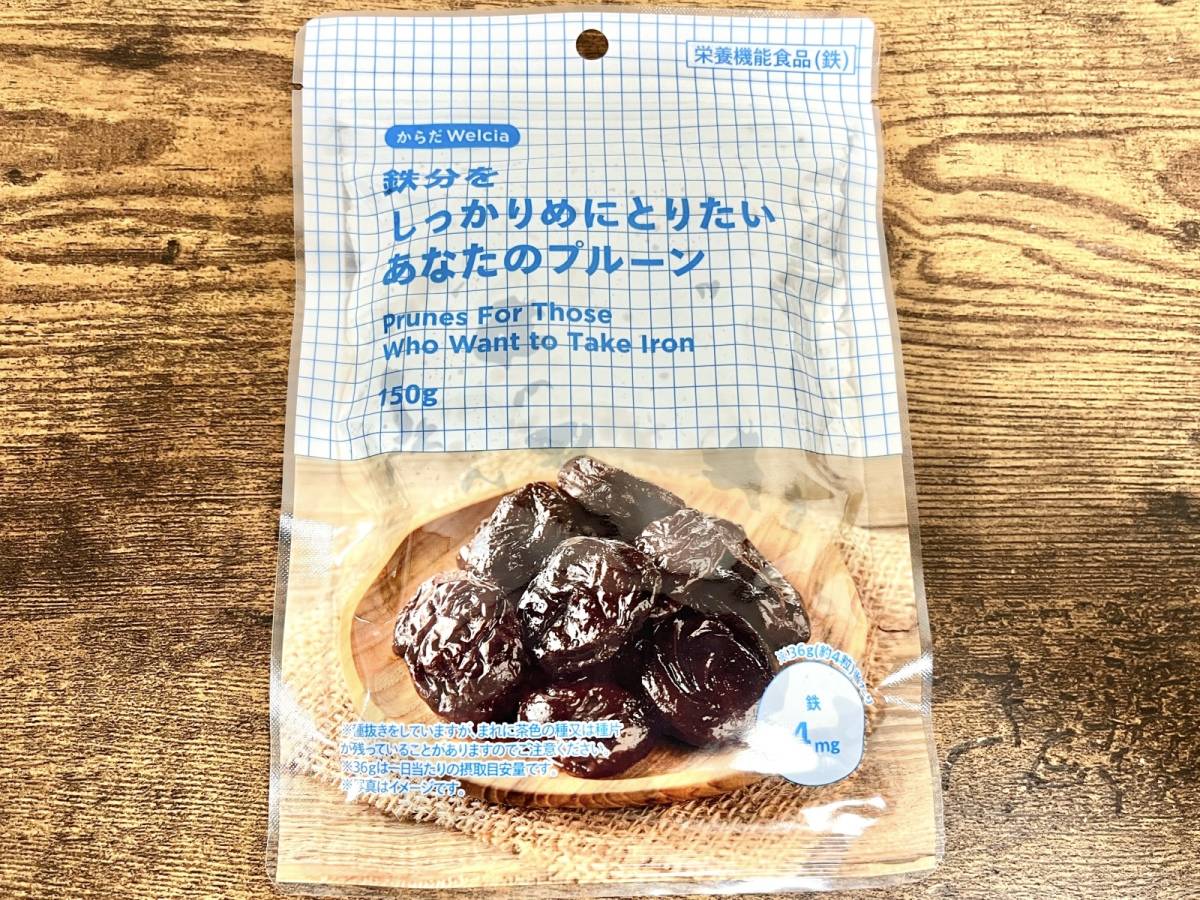 栄養機能食品(鉄)
からだWelcia
鉄分を
しっかりめにとりたい
あなたのプルーン
Prunes For Those
Who Want to Take Iron
150g
※36g(約4粒)
鉄
4mg
※種抜きをしていますが、まれに茶色の種又は種片
が残っていることがありますのでご注意ください。
※36gは一日当たりの摂取目安量です。
※写真はイメージです。